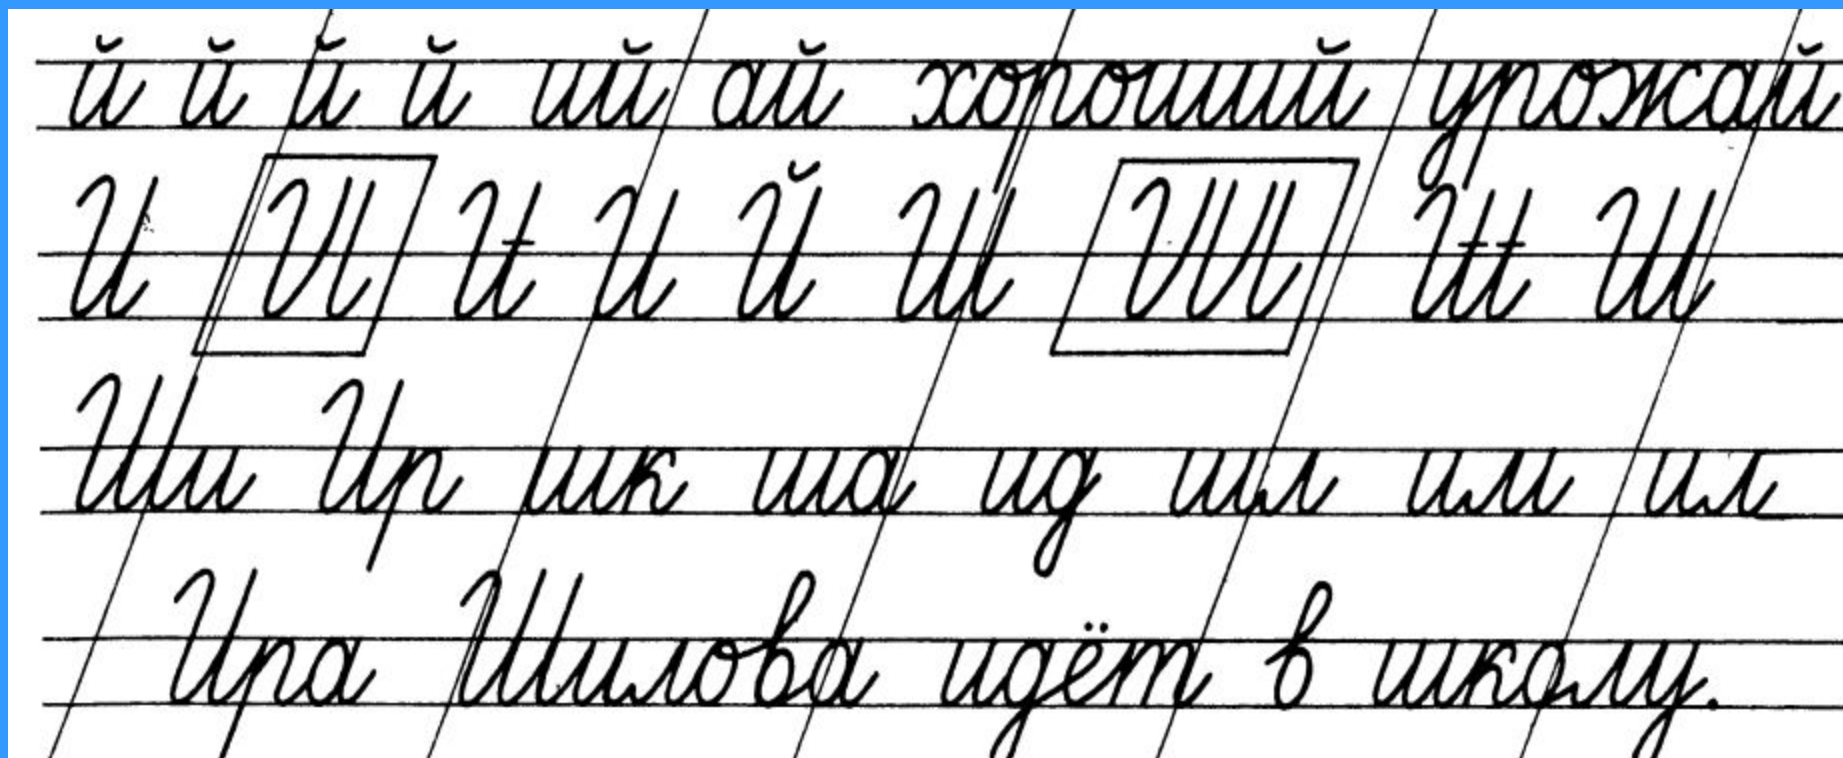 й й й й ий ай хороший урожай
И И И И Й Ш Ш Ш Ш
Ши Ир шк ша ид шл им ил
Ира Шилова идёт в школу.